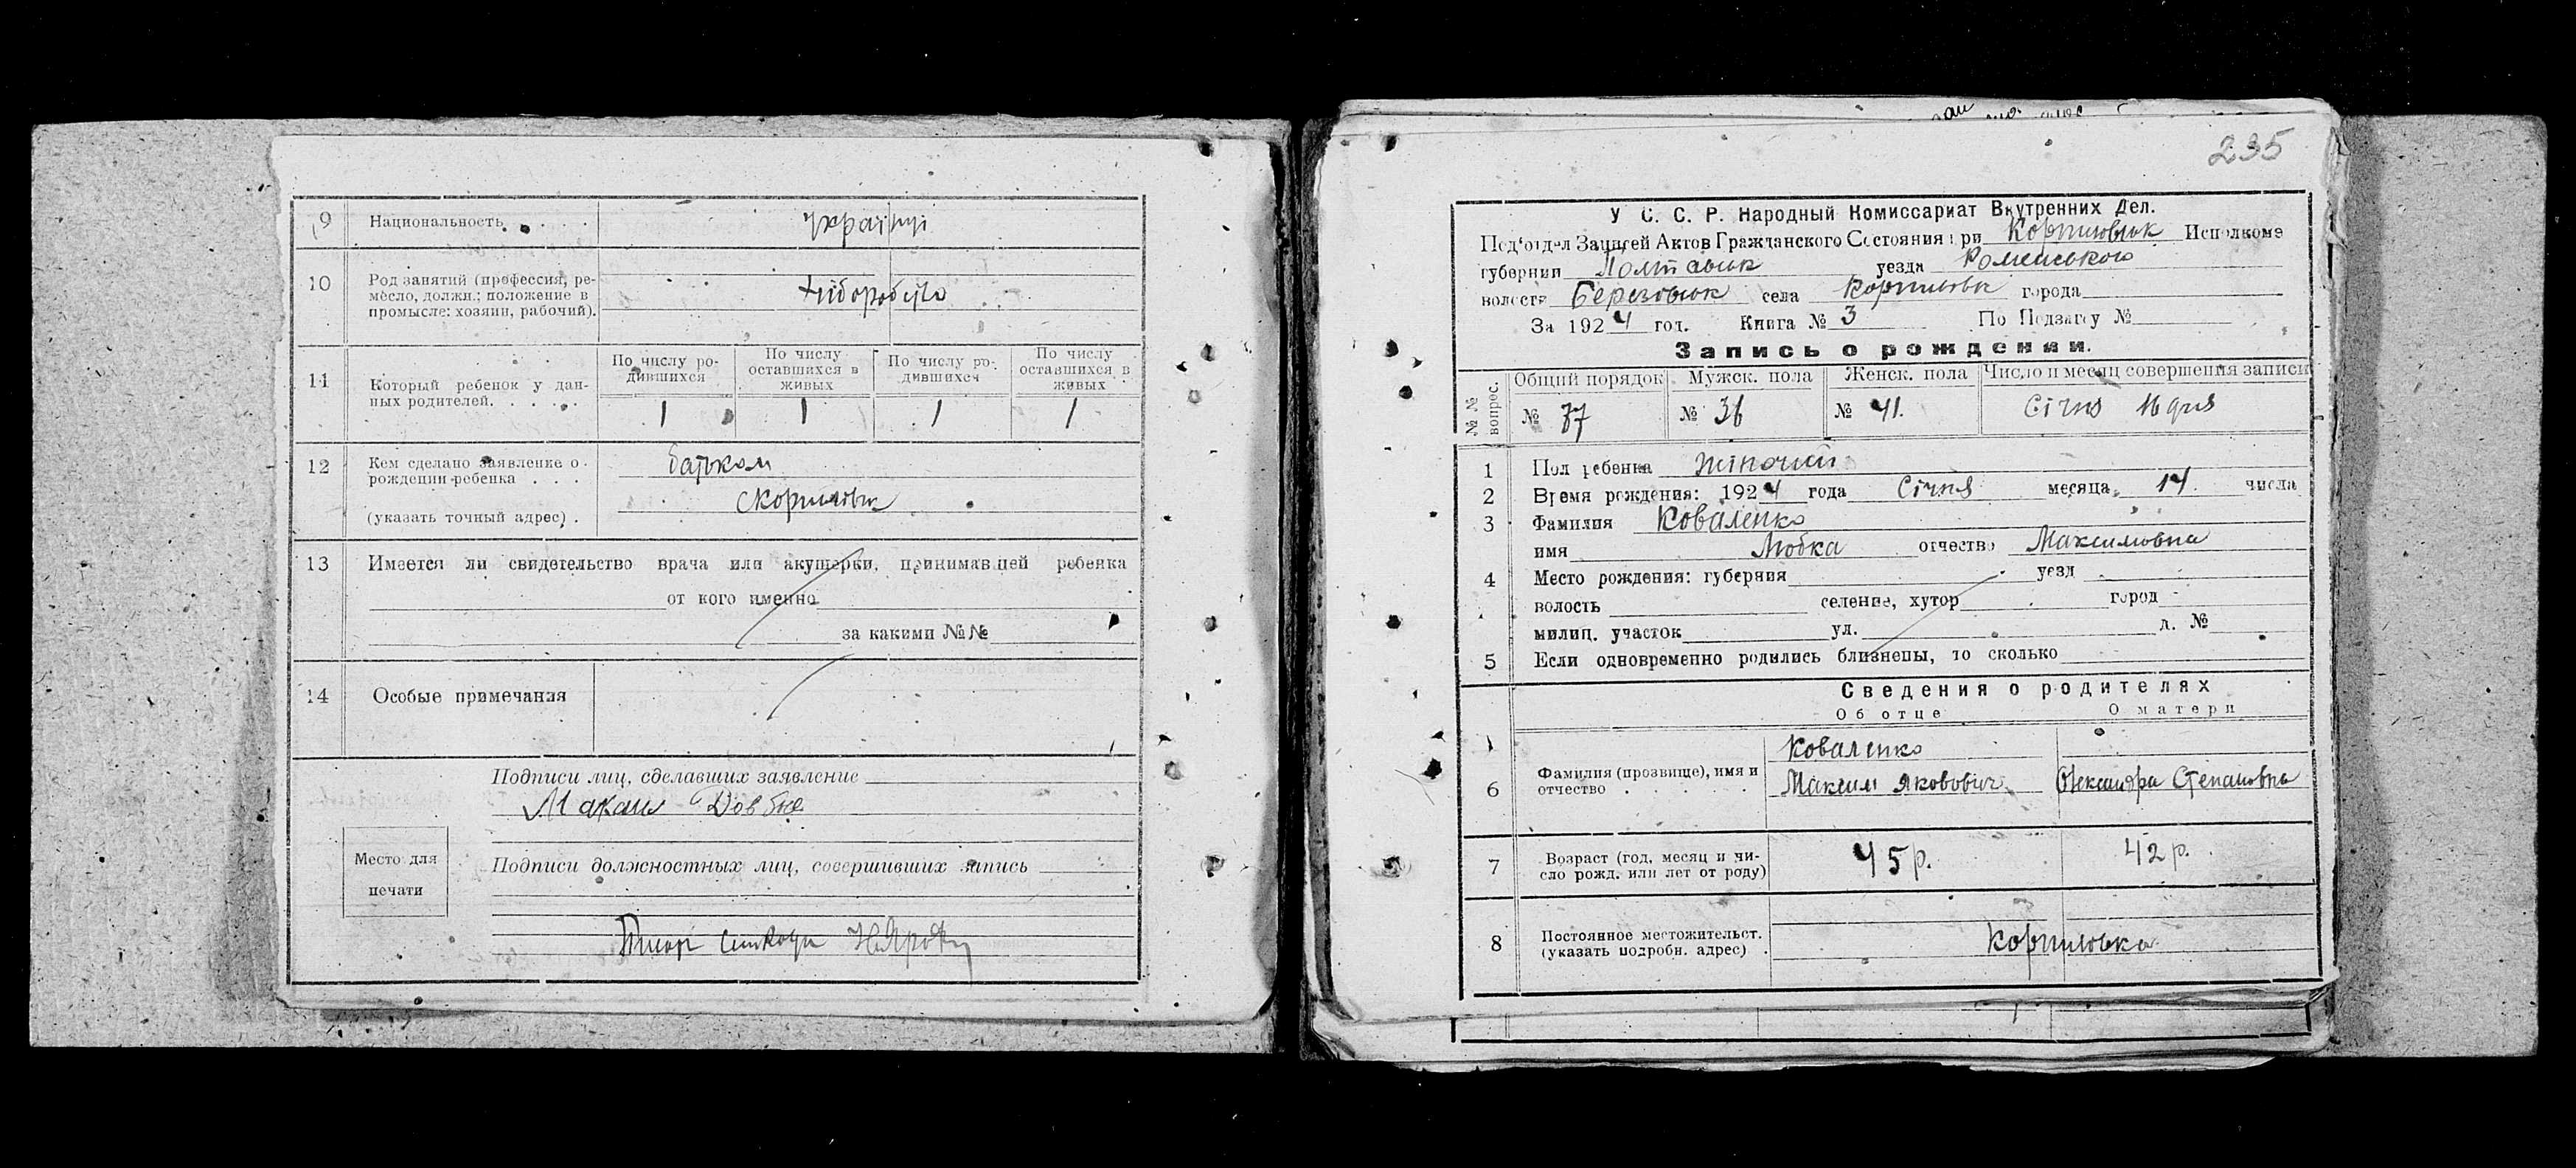 9 Национальность Українці
10 Род занятий (профессия, ре-
месло, должн.; положение в
промысле: хозяин, рабочий). хлібороб
11 Который ребенок у дан-
ных родителей.
По числу ро-
дившихся
По числу
оставшихся в
живых
По числу ро-
дившихся
По числу
оставшихся в
живых
1 1 1 1
12 Кем сделано заявление о
рождении ребенка батьком
(указать точный адрес)
13 Имеется ли свидетельство врача или акушерки, принимавшей ребенка
от кого именно
за какими №№
14 Особые примечания
Подписи лиц, сделавших заявление
Довбня
Место для
печати
Подписи должностных лиц, совершивших запись
235
У С. С. Р. Народный Комиссариат Внутренних Дел.
Под'отдел Записей Актов Гражданского Состояния при Исполкоме
губернии Полтавськ уезда Роменського
волости Березовськ села города
За 1924 год. Книга № 3 По Подзагсу №
Запись о рождении.
№№ вопрос.
Общий порядок Мужск. пола Женск. пола Число и месяц совершения записи
№ 77 № 36 № 41. Січня 16 дня
1 Пол ребенка жіночий
2 Время рождения: 1924 года Січня месяца 14 числа
3 Фамилия Коваленко
имя Любка отчество Максимовна
4 Место рождения: губерния уезд
волость селение, хутор город
милиц. участок ул. д. №
5 Если одновременно родились близнецы, то сколько
Сведения о родителях
Об отце О матери
6 Фамилия (прозвище), имя и
отчество
Коваленко
Максим Якович Олександра Степановна
7 Возраст (год, месяц и чи-
сло рожд. или лет от роду) 45 р. 42 р.
8 Постоянное местожительст.
(указать подробн. адрес)